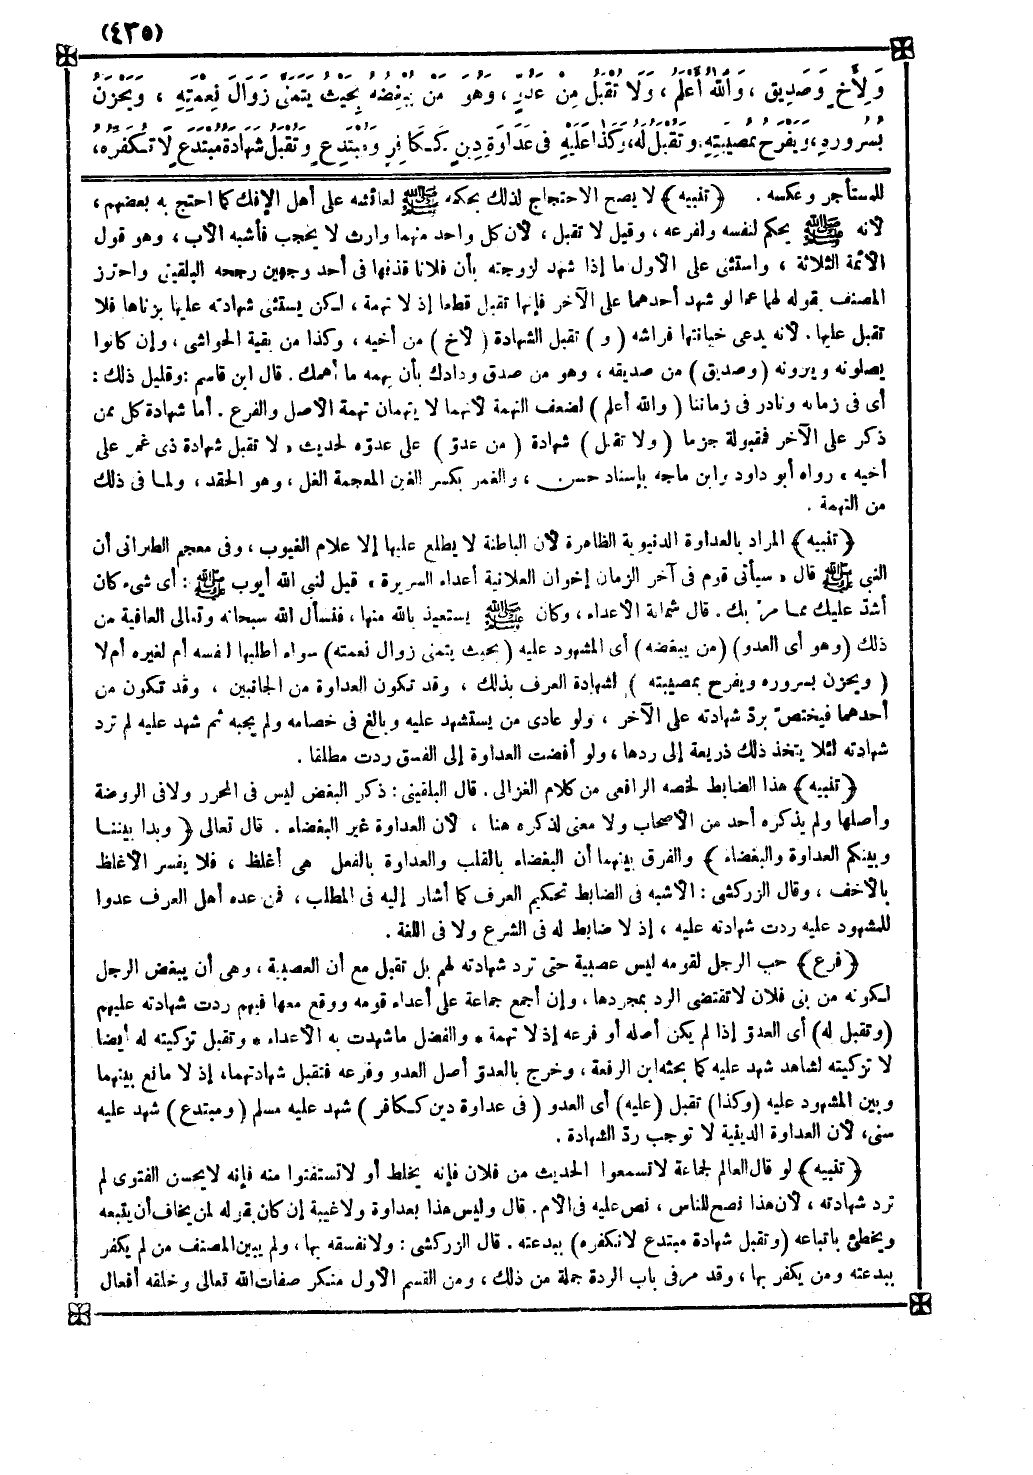 (٤٣٥)
وَلِأَخٍ وَصَدِيقٍ ، وَاللهُ أَعْلَمُ ، وَلَا تُقْبَلُ مِنْ عَدُوٍّ ، وَهُوَ مَنْ يُبْغِضُهُ بِحَيْثُ يَتَمَنَّى زَوَالَ نِعْمَتِهِ ، وَيَحْزَنُ
بِسُرُورِهِ ، وَيَفْرَحُ بِمُصِيبَتِهِ ، وَتُقْبَلُ لَهُ ، وَكَذَا عَلَيْهِ فِى عَدَاوَةِ دِينٍ كَكَافِرٍ وَمُبْتَدِعٍ وَتُقْبَلُ شَهَادَةُ مُبْتَدِعٍ لَا نُكَفِّرُهُ ،
للمستأجر وعكسه . ﴿تنبيه﴾ لا يصح الاحتجاج لذلك بحكمه ﷺ لعائشة على أهل الإفك كما احتج به بعضهم ،
لأنه ﷺ يحكم لنفسه ولفرعه ، وقيل لا تقبل ، لأن كل واحد منهما وارث لا يحجب فأشبه الأب ، وهو قول
الأئمة الثلاثة ، واستثنى على الأول ما إذا شهد لزوجته بأن فلانا قذفها فى أحد وجهين رجحه البلقينى واحترز
المصنف بقوله لهما عما لو شهد أحدهما على الآخر فإنها تقبل قطعا إذ لا تهمة ، لكن يستثنى شهادته عليها بزناها فلا
تقبل عليها . لأنه يدعى خيانتها فراشه ( و ) تقبل الشهادة ( لأخ ) من أخيه ، وكذا من بقية الحواشى ، وإن كانوا
يصلونه ويرونه ( وصديق ) من صديقه ، وهو من صدق ودادك بأن يهمه ما أهمك . قال ابن قاسم : وقليل ذلك :
أى فى زمانه ونادر فى زماننا ( والله أعلم ) لضعف التهمة لأنهما لا يتهمان تهمة الأصل والفرع . أما شهادة كل ممن
ذكر على الآخر فمقبولة جزما ( ولا تقبل ) شهادة ( من عدوّ ) على عدوّه لحديث « لا تقبل شهادة ذى غمر على
أخيه » رواه أبو داود وابن ماجه بإسناد حسن ، والغمر بكسر الغين المعجمة الغل ، وهو الحقد ، ولما فى ذلك
من التهمة .
﴿تنبيه﴾ المراد بالعداوة الدنيوية الظاهرة لأن الباطنة لا يطلع عليها إلا علام الغيوب ، وفى معجم الطبرانى أن
النبى ﷺ قال « سيأتى قوم فى آخر الزمان إخوان العلانية أعداء السريرة » قيل لنبى الله أيوب ﷺ : أى شىء كان
أشدّ عليك مما مرّ بك . قال شماتة الأعداء ، وكان ﷺ يستعيذ بالله منها ، فنسأل الله سبحانه وتعالى العافية من
ذلك (وهو أى العدو) (من يبغضه) أى المشهود عليه (بحيث يتمنى زوال نعمته) سواء اطلبها لنفسه أم لغيره أم لا
( ويحزن بسروره ويفرح بمصيبته ) لشهادة العرف بذلك ، وقد تكون العداوة من الجانبين ، وقد تكون من
أحدهما فيختصّ بردّ شهادته على الآخر ، ولو عادى من يستشهد عليه وبالغ فى خصامه ولم يجبه ثم شهد عليه لم ترد
شهادته لئلا يتخذ ذلك ذريعة إلى ردها ، ولو أفضت العداوة إلى الفسق ردت مطلقا .
﴿تنبيه﴾ هذا الضابط لخصه الرافعى من كلام الغزالى . قال البلقينى : ذكر البغض ليس فى المحرر ولا فى الروضة
وأصلها ولم يذكره أحد من الأصحاب ولا معنى لذكره هنا ، لأن العداوة غير البغضاء . قال تعالى ﴿ وبدا بيننا
وبينكم العداوة والبغضاء ﴾ والفرق بينهما أن البغضاء بالقلب والعداوة بالفعل هى أغلظ ، فلا يفسر الأغلظ
بالأخف ، وقال الزركشى : الأشبه فى الضابط تحكيم العرف كما أشار إليه فى المطلب ، فمن عده أهل العرف عدوا
للمشهود عليه ردت شهادته عليه ، إذ لا ضابط له فى الشرع ولا فى اللغة .
﴿فرع﴾ حب الرجل لقومه ليس عصبية حتى ترد شهادته لهم بل تقبل مع أن العصبية ، وهى أن يبغض الرجل
لكونه من بنى فلان لا تقتضى الرد بمجردها ، وإن أجمع جماعة على أعداء قومه ووقع معها فيهم ردت شهادته عليهم
(وتقبل له) أى العدوّ إذا لم يكن أصله أو فرعه إذ لا تهمة * والفضل ما شهدت به الأعداء * وتقبل تزكيته له أيضا
لا تزكيته لشاهد شهد عليه كما بحثه ابن الرفعة ، وخرج بالعدوّ أصل العدو وفرعه فتقبل شهادتهما، إذ لا مانع بينهما
وبين المشهود عليه (وكذا) تقبل (عليه) أى العدو ( فى عداوة دين ككافر ) شهد عليه مسلم ( ومبتدع ) شهد عليه
سنى، لأن العداوة الدينية لا توجب ردّ الشهادة .
﴿تنبيه﴾ لو قال العالم لجماعة لا تسمعوا الحديث من فلان فإنه يخلط أو لا تستفتوا منه فإنه لا يحسن الفتوى لم
ترد شهادته ، لأن هذا نصح للناس ، نص عليه فى الأم . قال وليس هذا بعداوة ولا غيبة إن كان يقوله لمن يخاف أن يتبعه
ويخطئ باتباعه (وتقبل شهادة مبتدع لا نكفره) ببدعته . قال الزركشى : ولا نفسقه بها ، ولم يبين المصنف من لم يكفر
ببدعته ومن يكفر بها ، وقد مر فى باب الردة جملة من ذلك ، ومن القسم الأول منكر صفات الله تعالى وخلقه أفعال